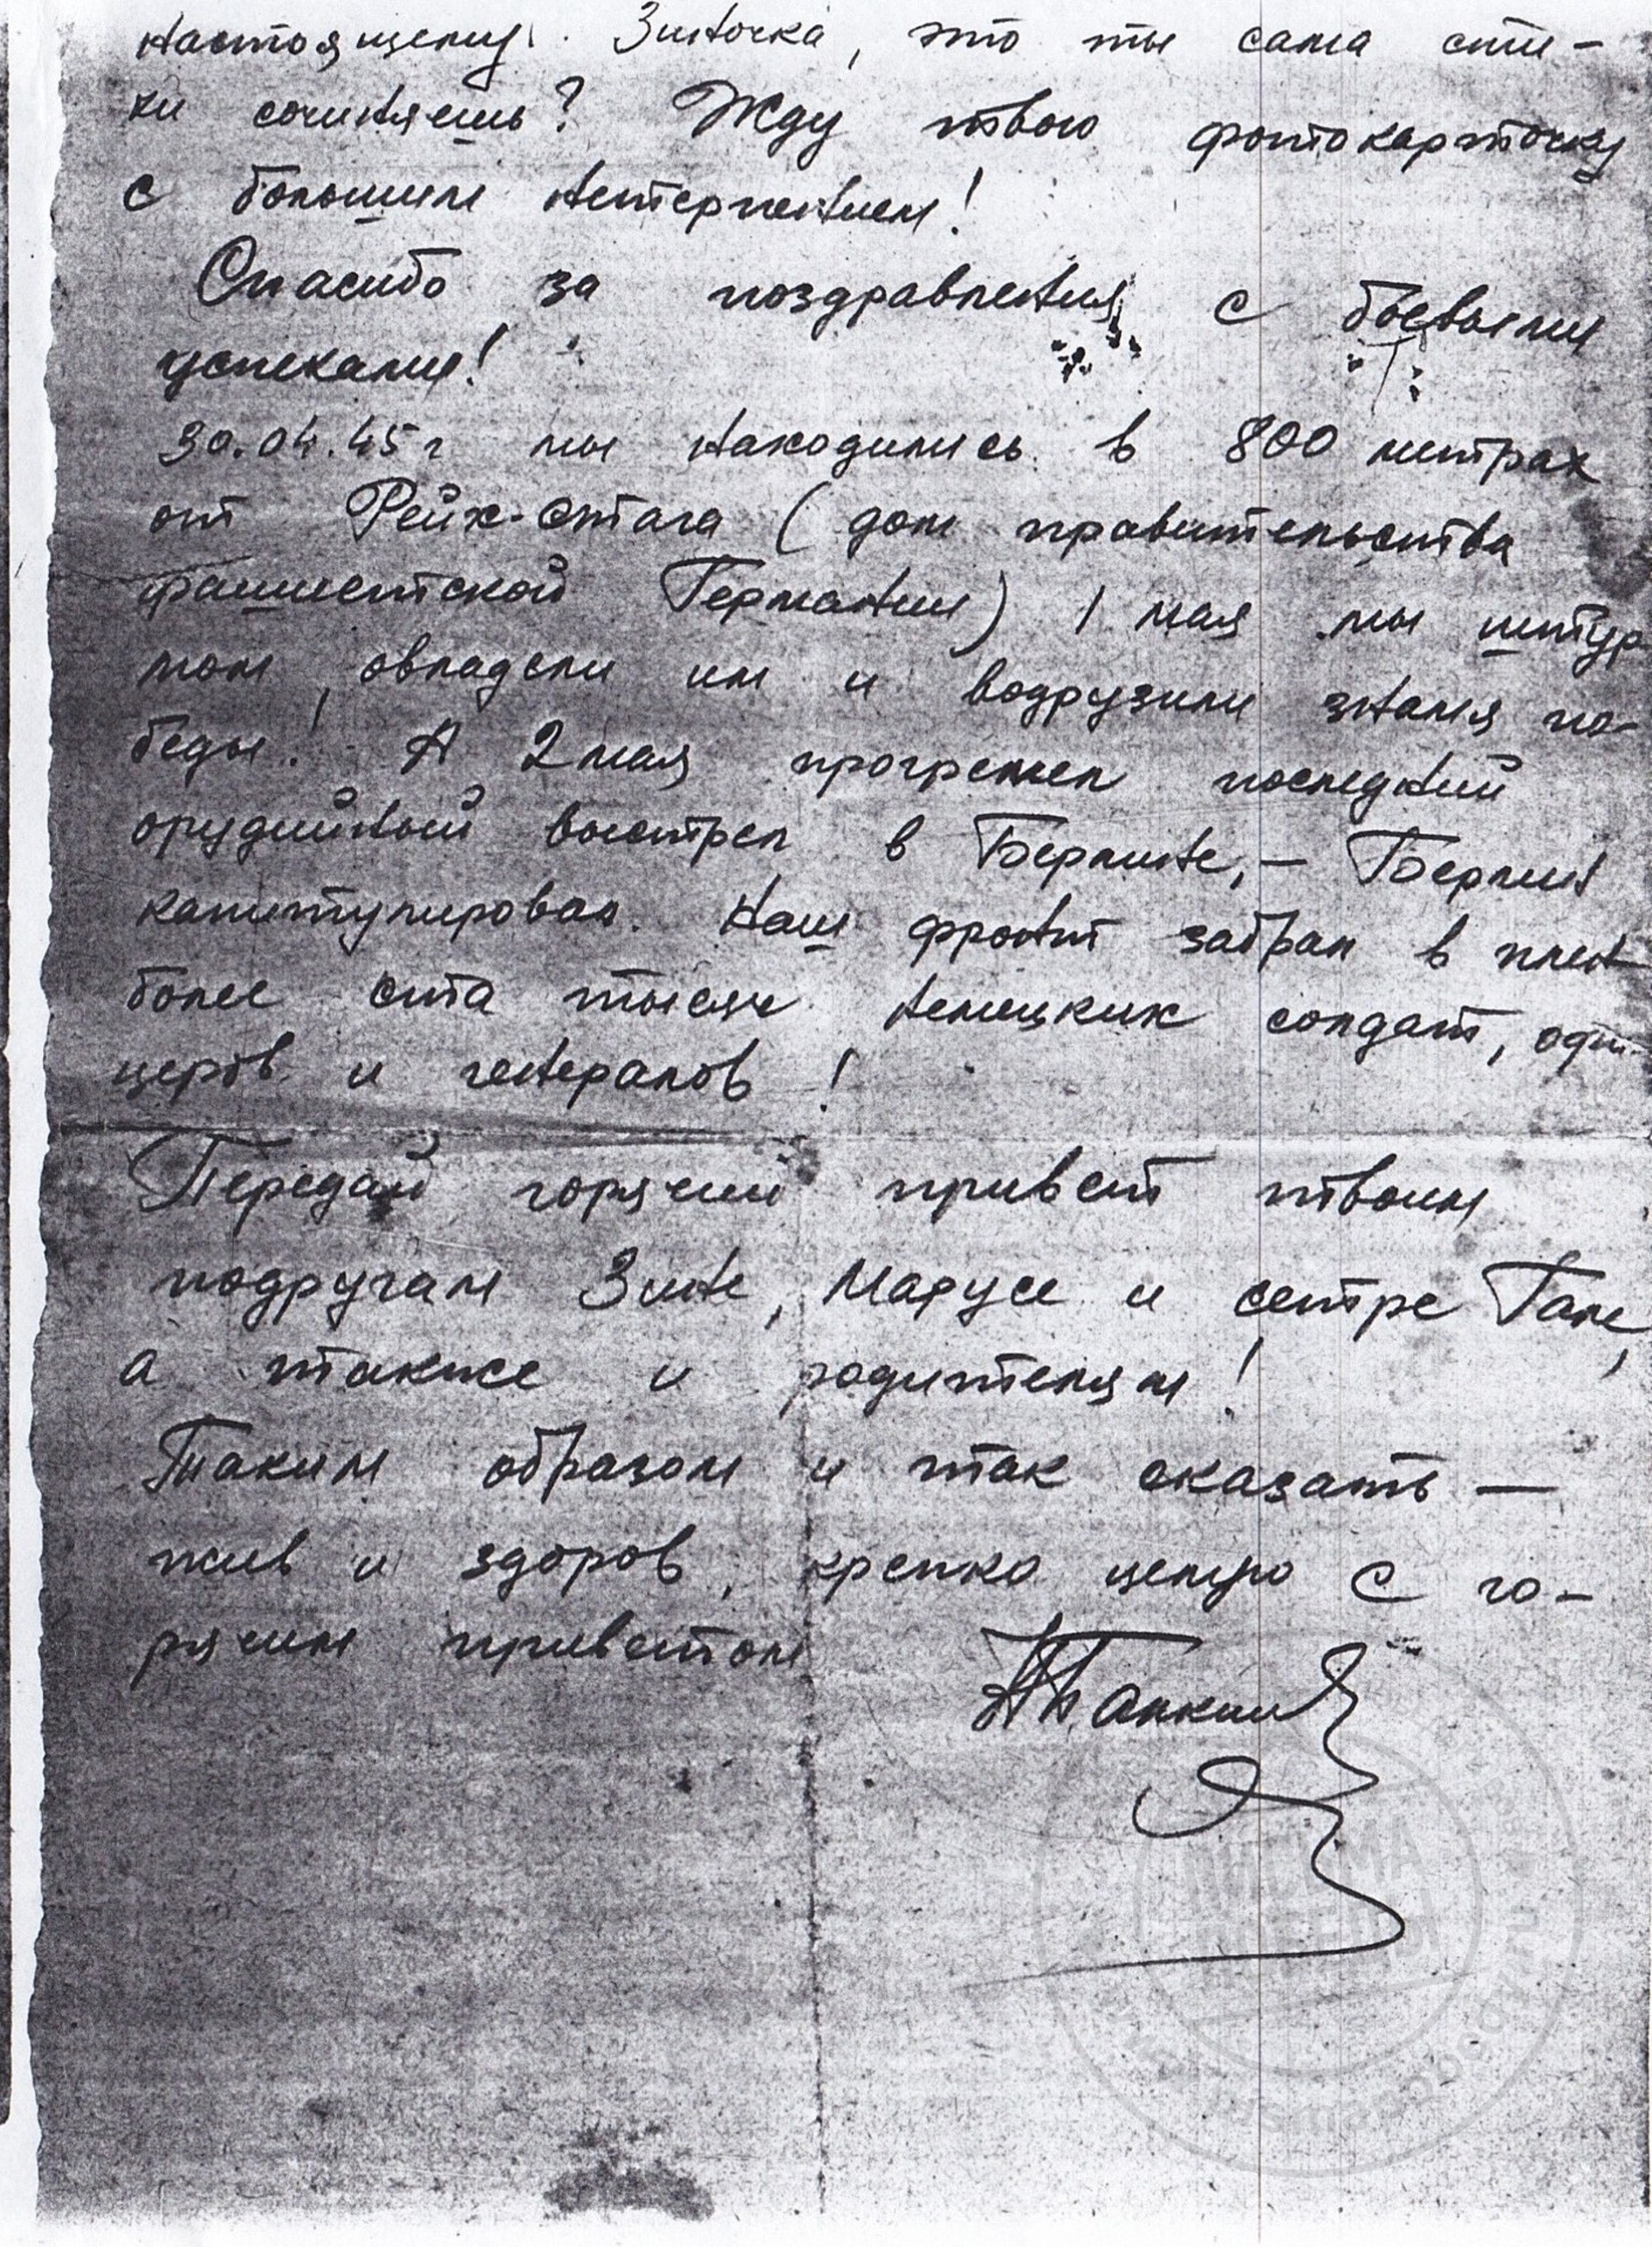 настоящему. Зиночка, это ты сама сти-
ки сочиняешь? Жду твою фотокарточку
с большим нетерпением!
Спасибо за поздравления с боевыми
успехами!
30.04.45 г мы находились в 800 метрах
от Рейх-стага (дом правительства
фашистской Германии) 1 мая мы штур
мом овладели им и водрузили знамя по-
беды! А 2 мая прогремел последний
орудийный выстрел в Берлине, – Берлин
капитулировал. Наш фронт забрал в плен
более ста тысяч немецких солдат, офи-
церов и генералов!
Передай горячий привет твоим
подругам Зине, Марусе и сетре Гале,
а также и родителям!
Таким образом и так сказать —
жив и здоров, крепко целую с го-
рячим приветом
ПИСЬМА